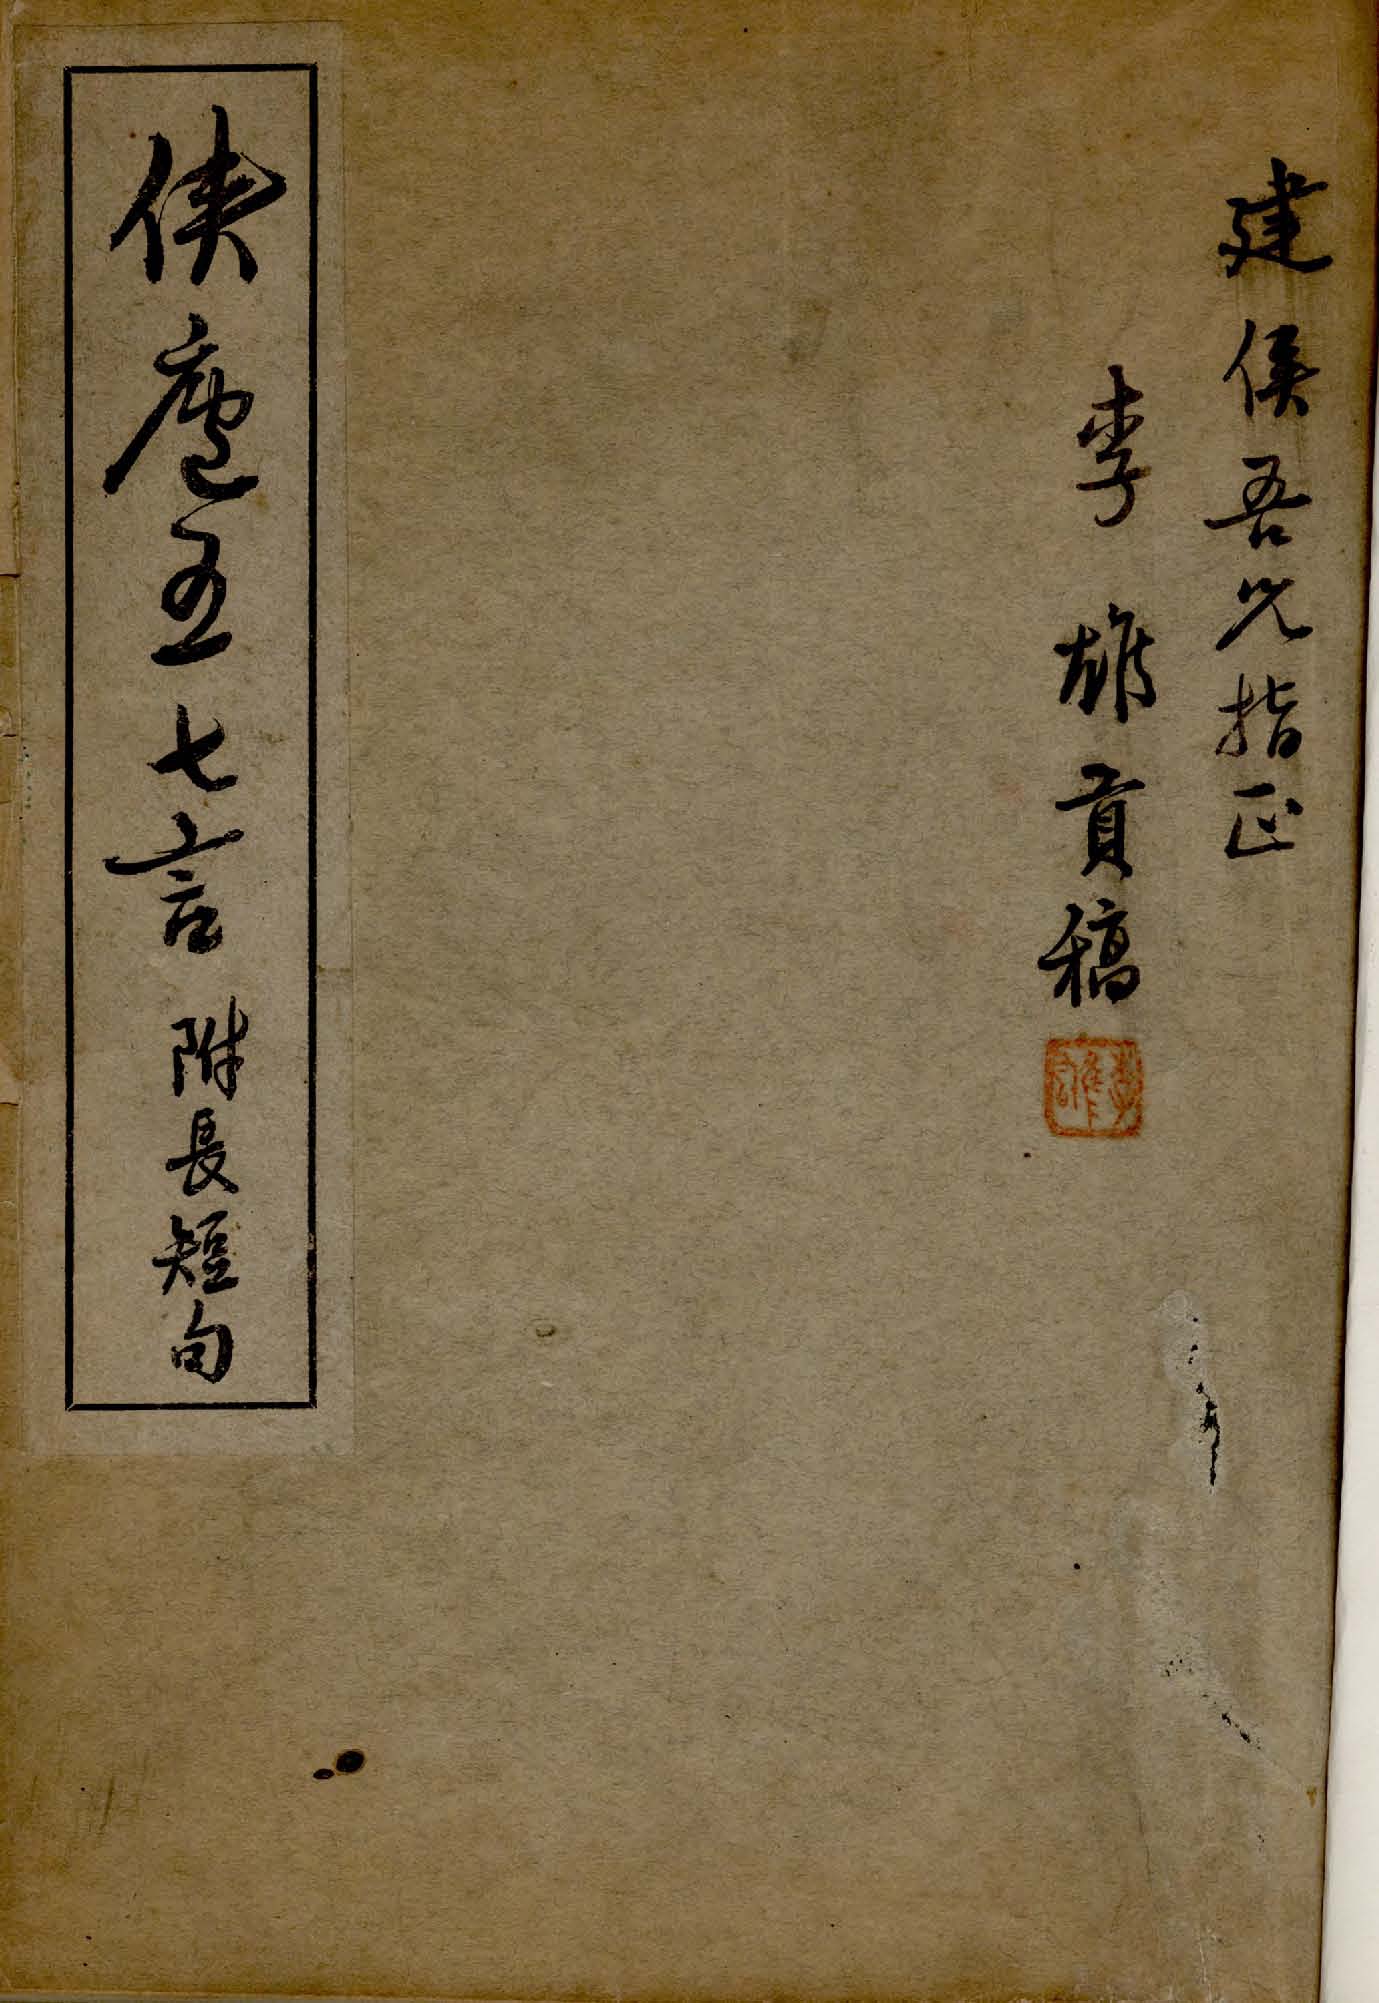 建侯吾兄指正
李雄貢稿
俠廬五七言 附長短句